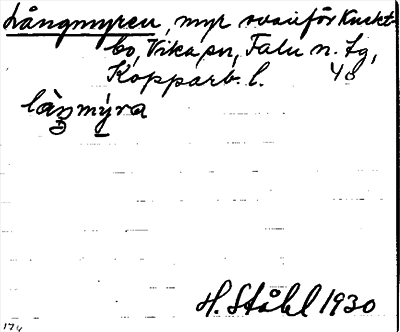 Långmyren, myr ovanför Knekt-
bo, Vika sn, Falu n. tg,
Kopparb. l. 48
låŋmýra
H. Ståhl 1930
174